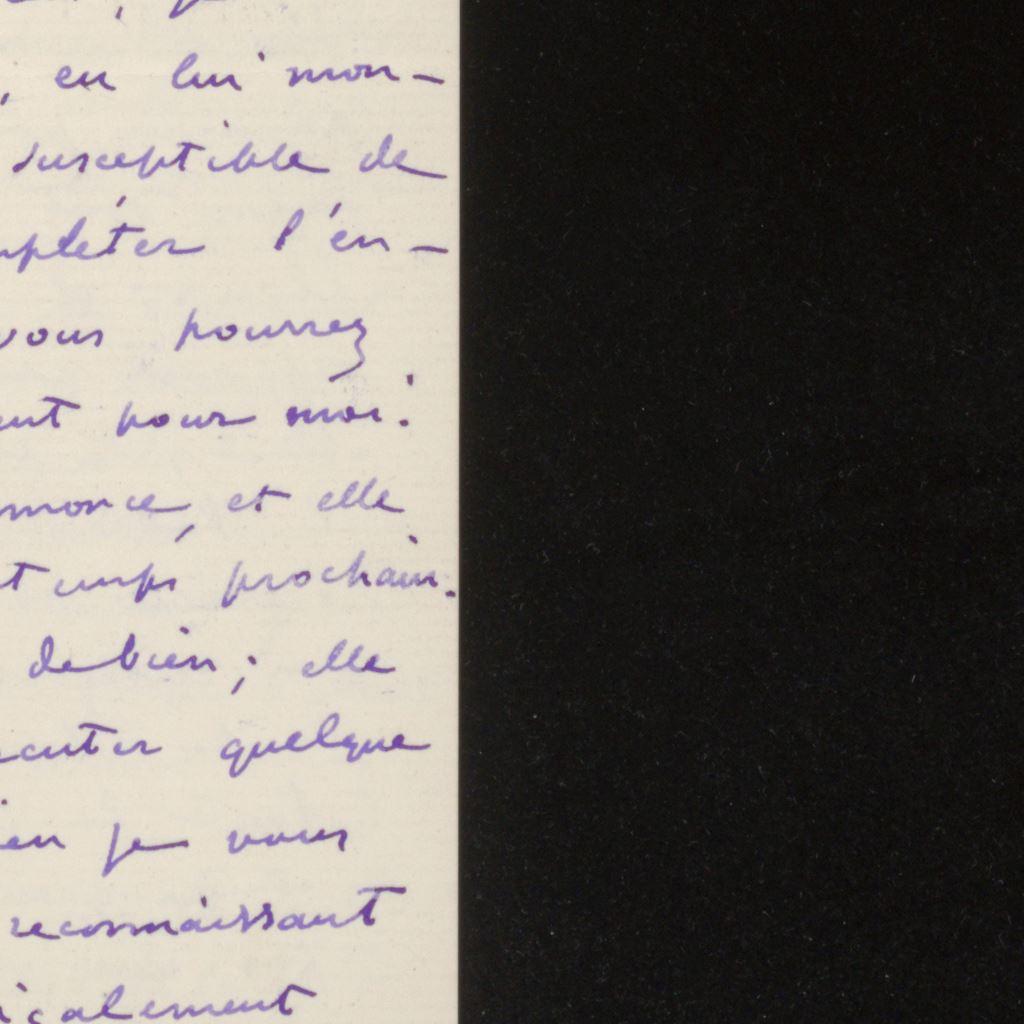 , en lui mon-
susceptible de
mpléter l'en-
vous pourrez
ent pour moi.
et elle
t corps prochain.
de bien ; elle
cuter quelque
en je vous
reconnaissant
icalement